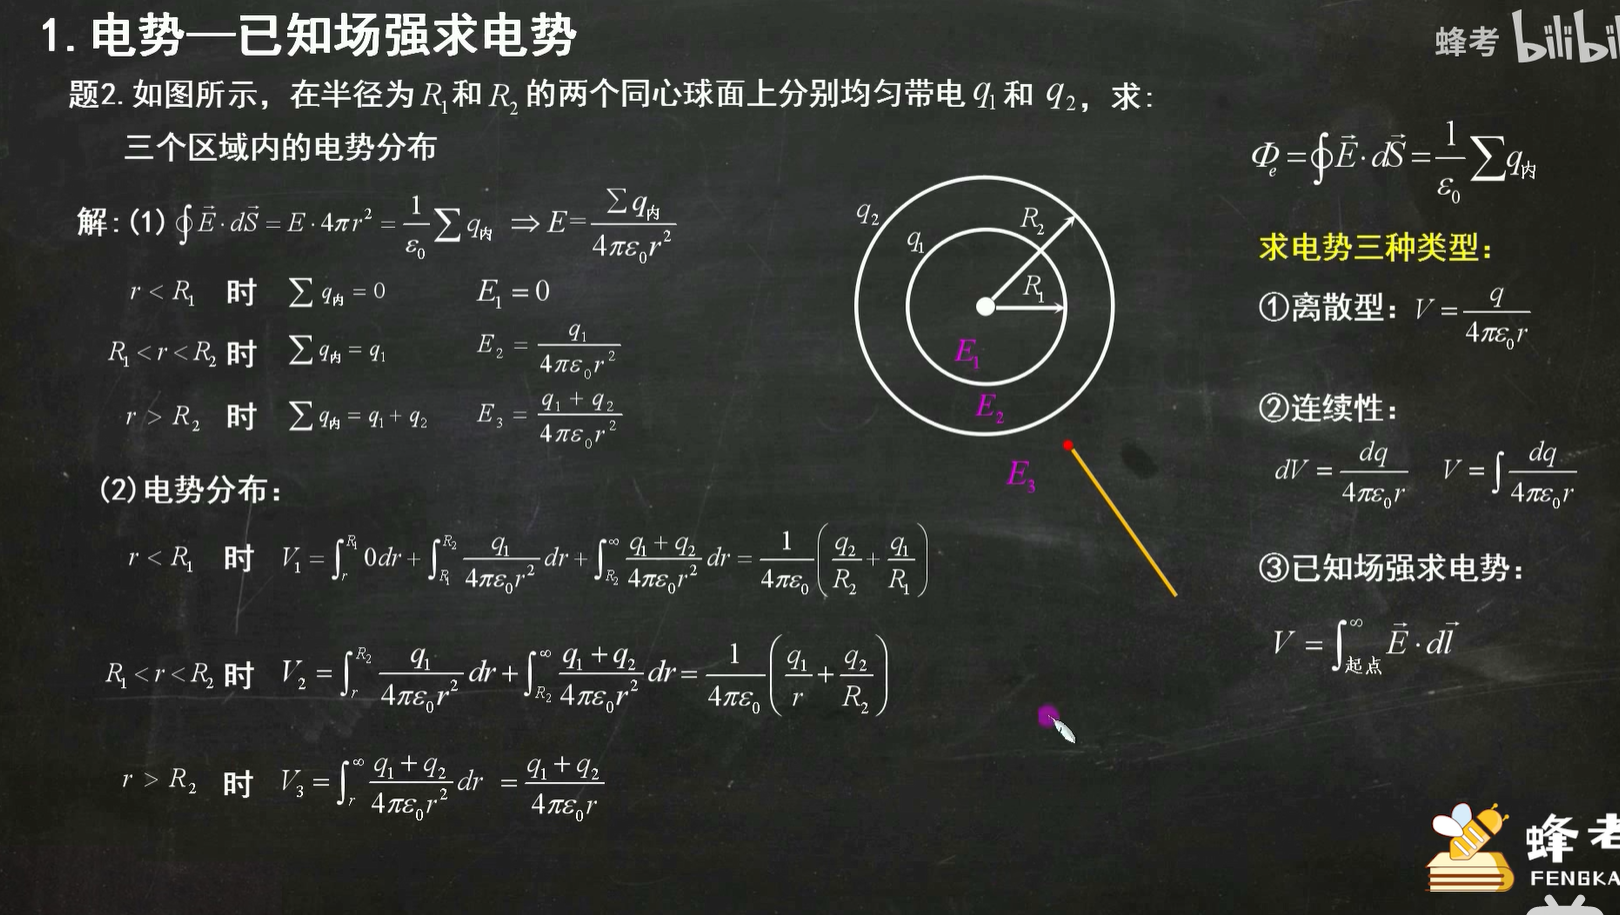 1.电势—已知场强求电势
蜂考 bilibili
题2.如图所示，在半径为 R₁和 R₂ 的两个同心球面上分别均匀带电 q₁ 和 q₂，求：
三个区域内的电势分布
解：(1) ∮E⃗·dS⃗ = E·4πr² = 1/ε₀ ∑q内 ⇒ E = ∑q内/4πε₀r²
r < R₁ 时 ∑q内 = 0 E₁ = 0
R₁ < r < R₂ 时 ∑q内 = q₁ E₂ = q₁/4πε₀r²
r > R₂ 时 ∑q内 = q₁ + q₂ E₃ = (q₁ + q₂)/4πε₀r²
(2)电势分布：
r < R₁ 时 V₁ = ∫_r^R₁ 0dr + ∫_R₁^R₂ q₁/4πε₀r² dr + ∫_R₂^∞ (q₁ + q₂)/4πε₀r² dr = 1/4πε₀ (q₂/R₂ + q₁/R₁)
R₁ < r < R₂ 时 V₂ = ∫_r^R₂ q₁/4πε₀r² dr + ∫_R₂^∞ (q₁ + q₂)/4πε₀r² dr = 1/4πε₀ (q₁/r + q₂/R₂)
r > R₂ 时 V₃ = ∫_r^∞ (q₁ + q₂)/4πε₀r² dr = (q₁ + q₂)/4πε₀r
q₂
q₁
R₂
R₁
E₁
E₂
E₃
Φe = ∮E⃗·dS⃗ = 1/ε₀ ∑q内
求电势三种类型：
①离散型：V = q/4πε₀r
②连续性：
dV = dq/4πε₀r V = ∫ dq/4πε₀r
③已知场强求电势：
V = ∫_起点^∞ E⃗·dl⃗
蜂考
FENGKA